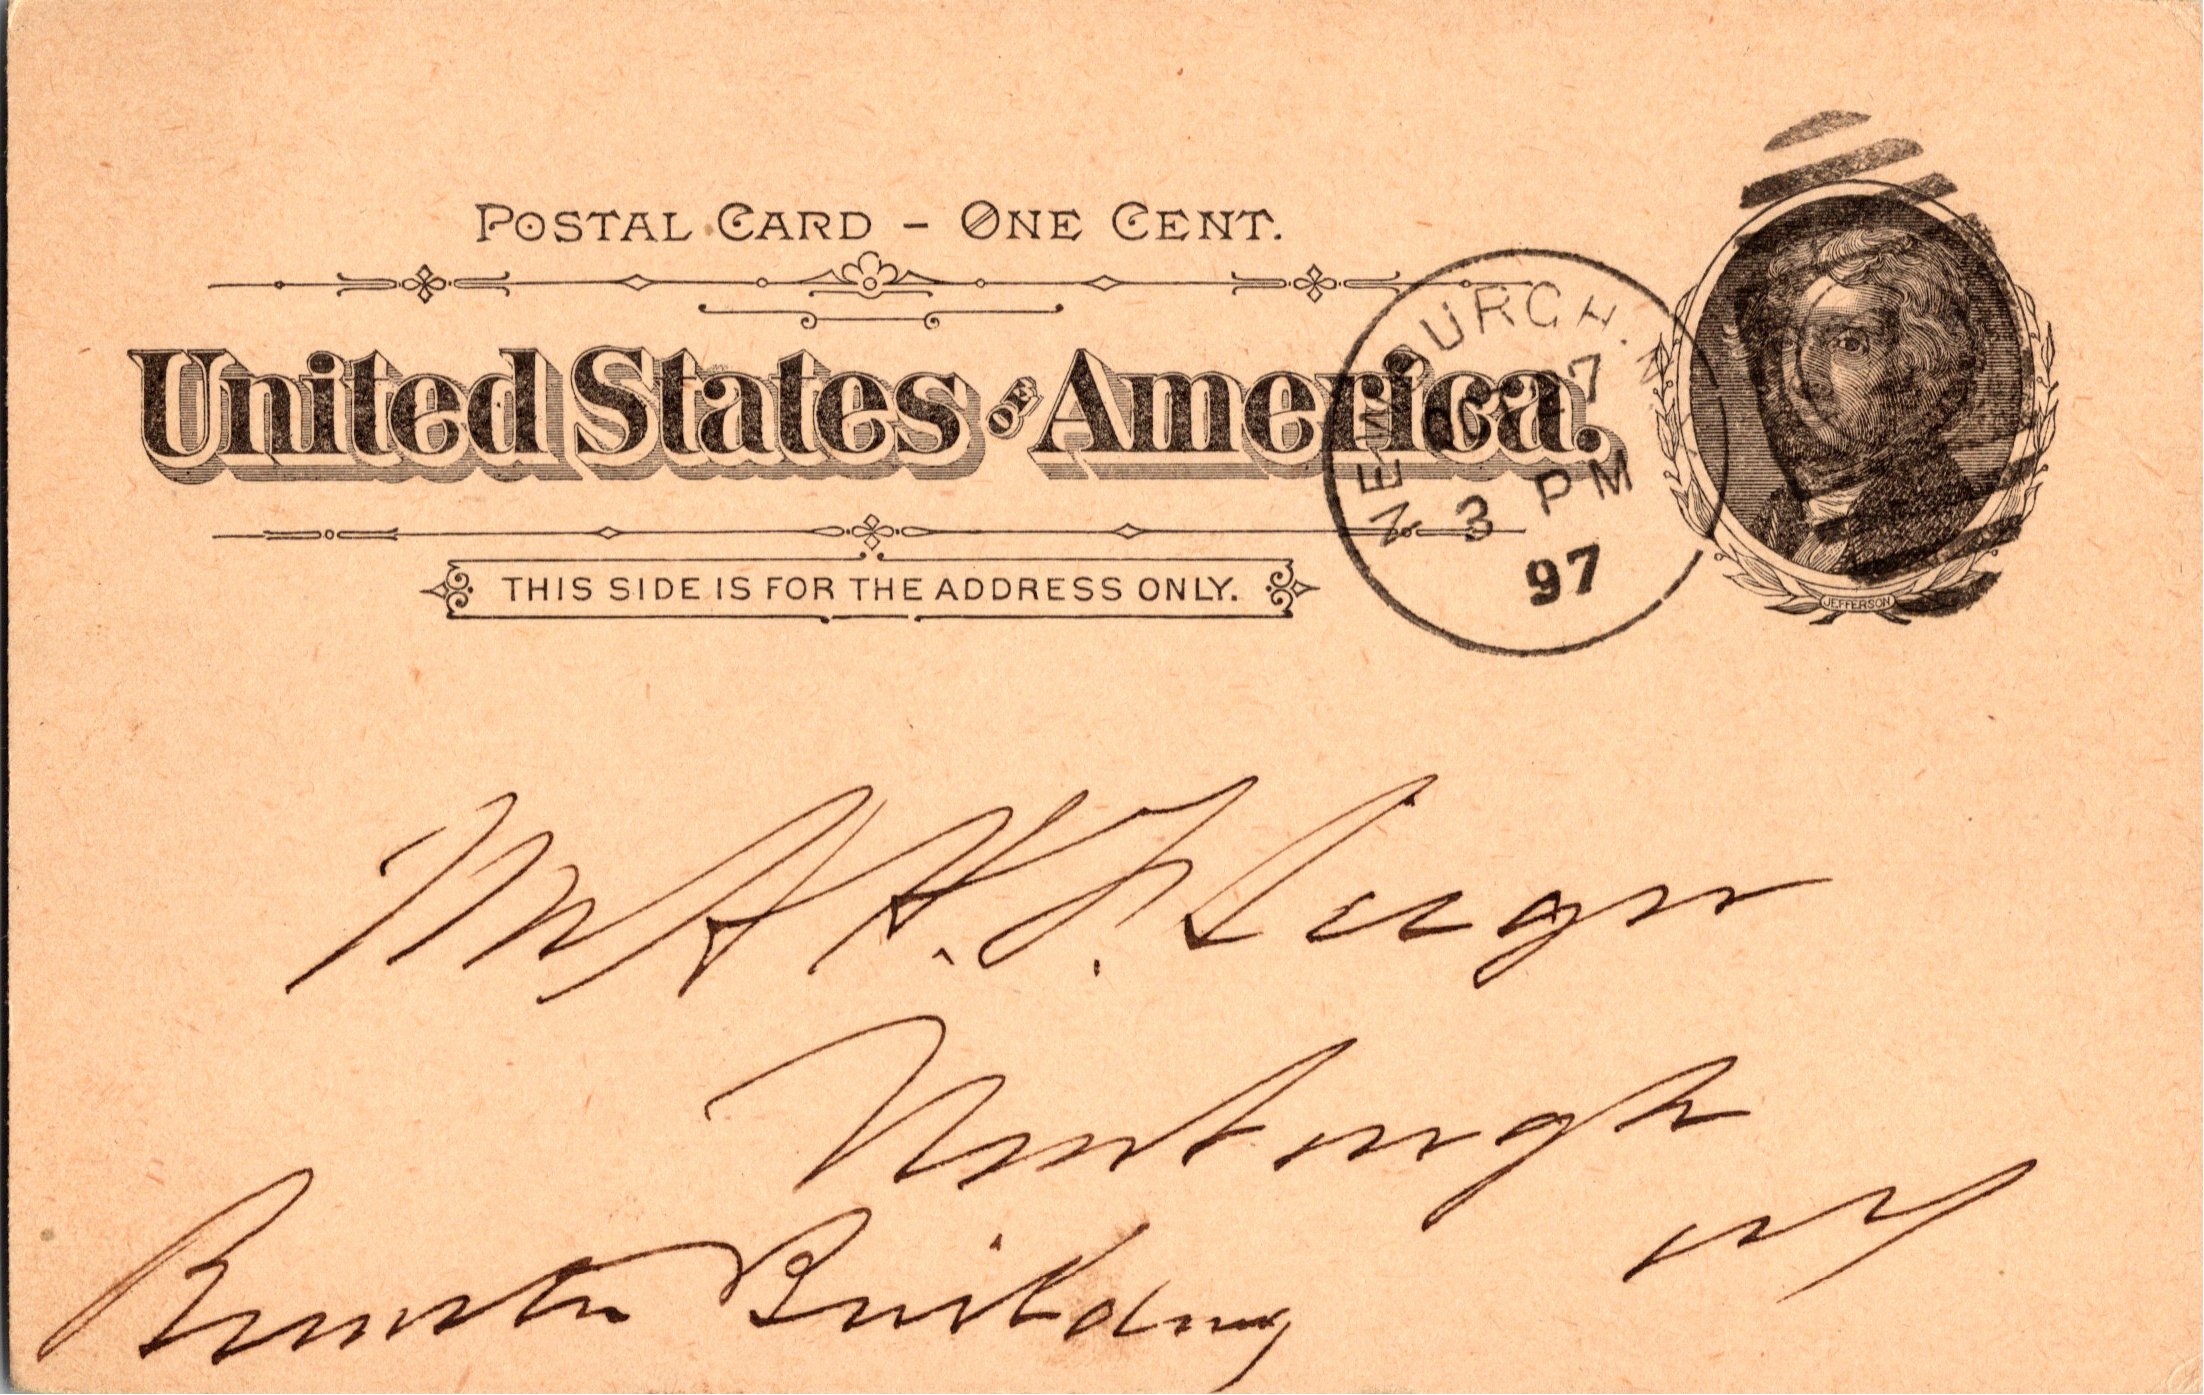 POSTAL CARD – ONE CENT.
United States OF America.
THIS SIDE IS FOR THE ADDRESS ONLY.
NEWBURGH. N
OCT 7
3 PM
97
JEFFERSON
Newburgh
NY
Building